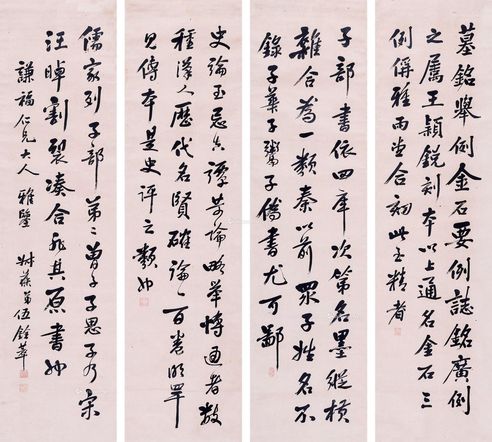 墓銘舉例金石要例誌銘廣例
之屬王穎銳刻本以上通名金石三
例雅雨堂合此至精者
子部書依四庫次第名墨縱橫
雜合為一類秦以前眾子姓名不
錄子華子鬻子偽書尤可鄙
史論至忌空譚苛論略舉博通者數
種漢人歷代名賢確論一百卷明罕
見傳本是史評之類也
儒家列子部第二曾子子思子乃宋
汪晫割裂湊合非其原書也
謙福仁兄大人雅鑒 叔葆弟伍銓萃